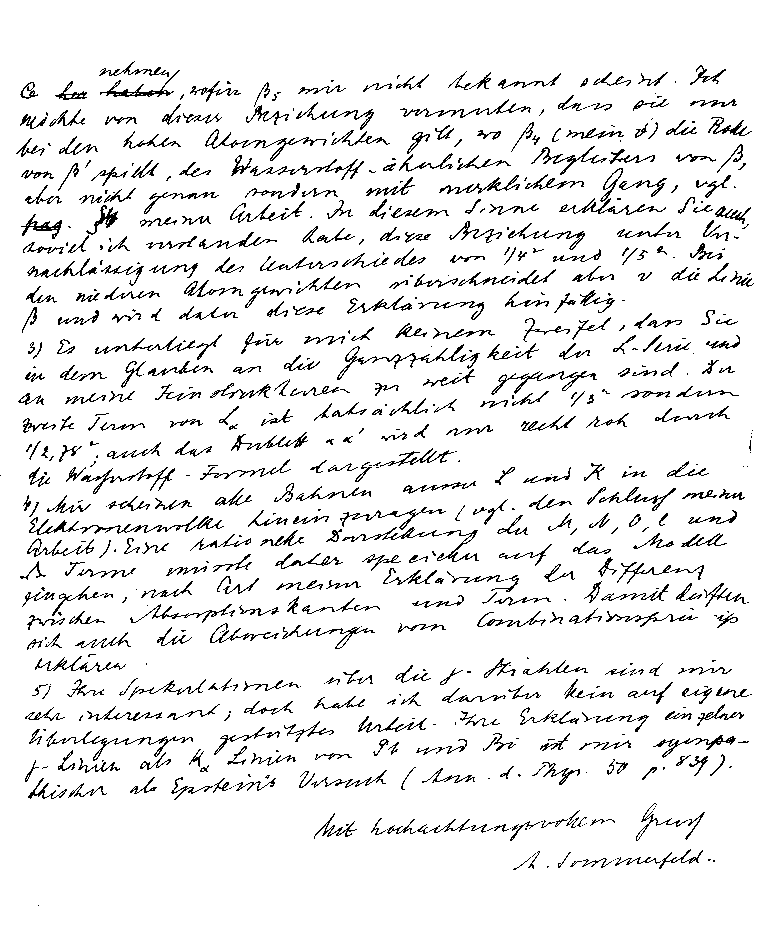 nehmen
Ce her haben, wofür β₅ mir nicht bekannt scheint. Ich
möchte von dieser Beziehung vermuten, dass sie nur
bei den hohen Atomgewichten gilt, wo β₄ (mein ) die Rolle
von β' spielt, des Wasserstoff-ähnlichen Begleiters von β,
aber nicht genau sondern mit merklichem Gang, vgl.
pag. meiner Arbeit. In diesem Sinne erklären Sie auch,
soviel ich verstanden habe, diese Beziehung unter Ver-
nachlässigung des Unterschiedes von 1/4² und 1/5². Bei
den niederen Atomgewichten überschneidet aber ν die Linie
β und wird daher diese Erklärung hinfällig.
3) Es unterliegt für mich keinem Zweifel, dass Sie
in dem Glauben an die Ganzzahligkeit der L-Serie und
an meine Feinstrukturen zu weit gegangen sind. Der
zweite Term von Lα ist tatsächlich nicht 1/3² sondern
1/2,78², auch das Dublett αα' wird nur recht roh durch
die Wasserstoff-Formel dargestellt.
4) Mir scheinen alle Bahnen ausser L und K in die
Elektronenwolke hineinzuragen (vgl. den Schluss meiner
Arbeit). Eine rationelle Darstellung der M, N, O, und
Terme müsste daher specieller auf das Modell
eingehen, nach Art meiner Erklärung der Differenz
zwischen Absorptionskanten und Term. Damit dürften
sich auch die Abweichungen vom Combinationsprincip
erklären.
5) Ihre Spekulationen über die γ-Strahlen sind mir
sehr interessant; doch habe ich darüber kein auf eigene
Überlegungen gestütztes Urteil. Ihre Erklärung einzelner
γ-Linien als Kα Linien von Pb und Bi ist mir sympa-
thischer als Epstein's Versuch (Ann. d. Phys. 50 p. 839).
Mit hochachtungsvollem Gruss
A. Sommerfeld.